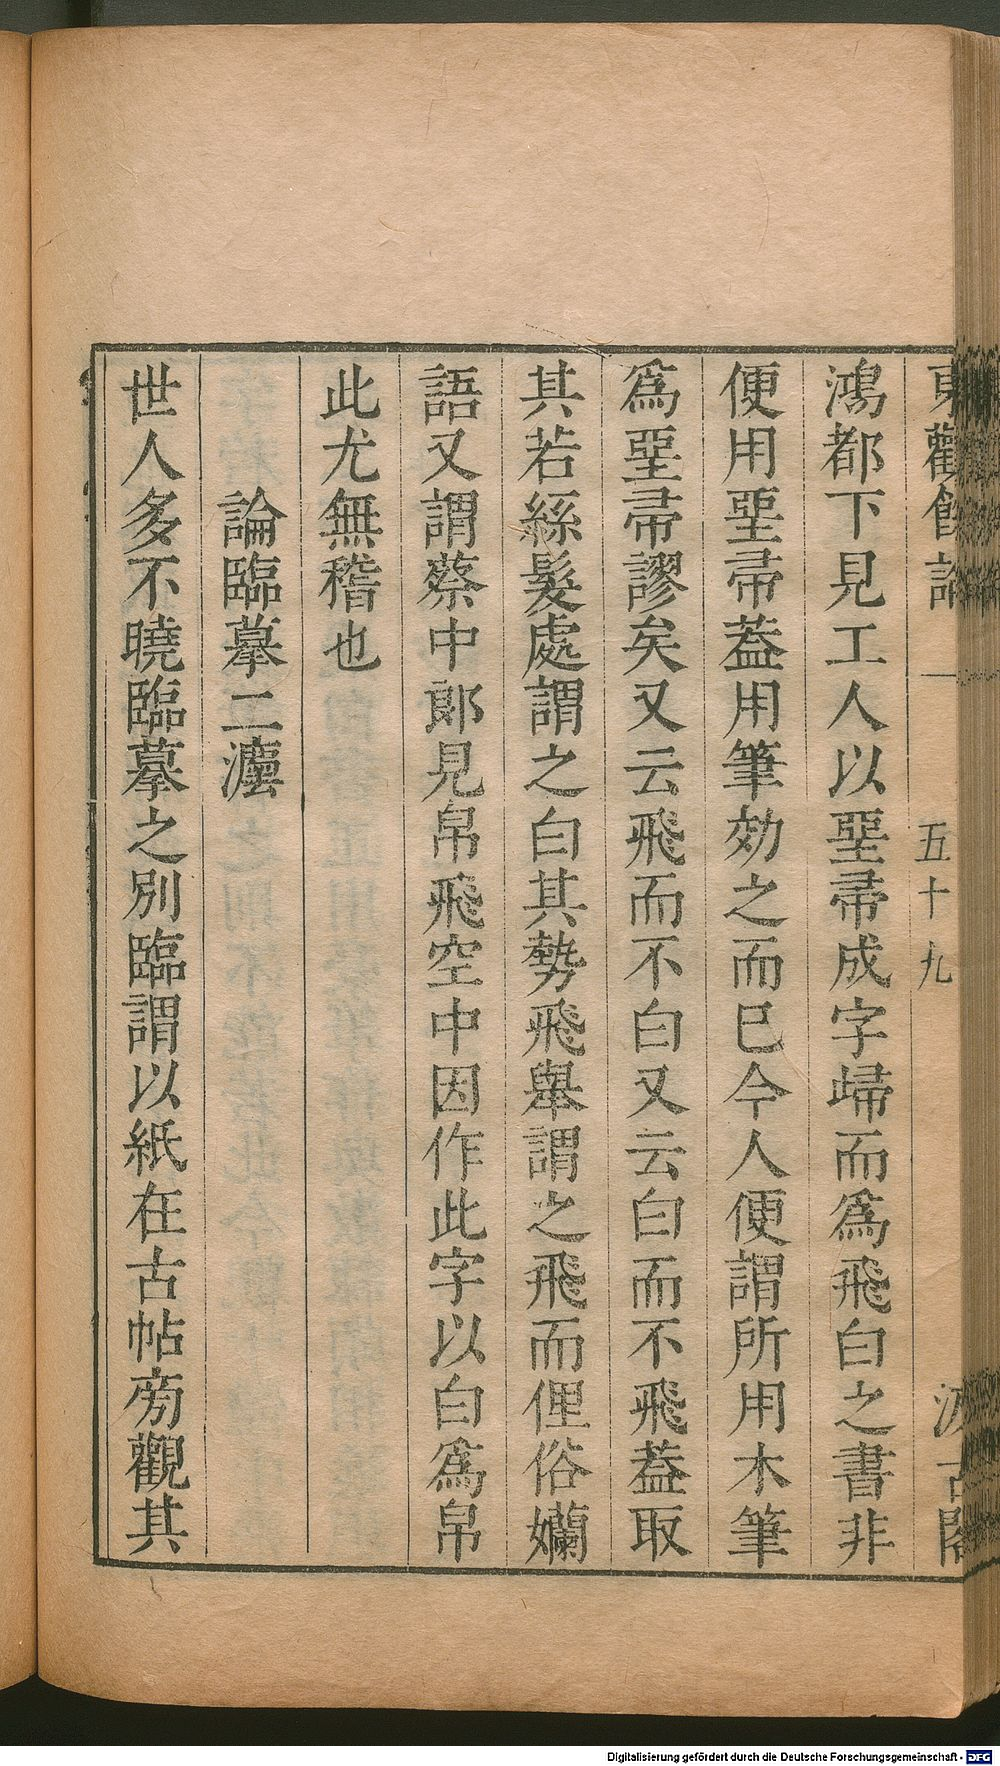 東觀餘論
一
五十九
汲古閣
鴻都下見工人以堊帚成字歸而爲飛白之書非
便用堊帚葢用筆効之而巳今人便謂所用木筆
爲堊帚謬矣又云飛而不白又云白而不飛葢取
其若絲髮處謂之白其勢飛舉謂之飛而俚俗嬾
語又謂蔡中郎見帛飛空中因作此字以白爲帛
此尤無稽也
論臨摹二灋
世人多不曉臨摹之別臨謂以紙在古帖旁觀其
Digitalisierung gefördert durch die Deutsche Forschungsgemeinschaft - DFG